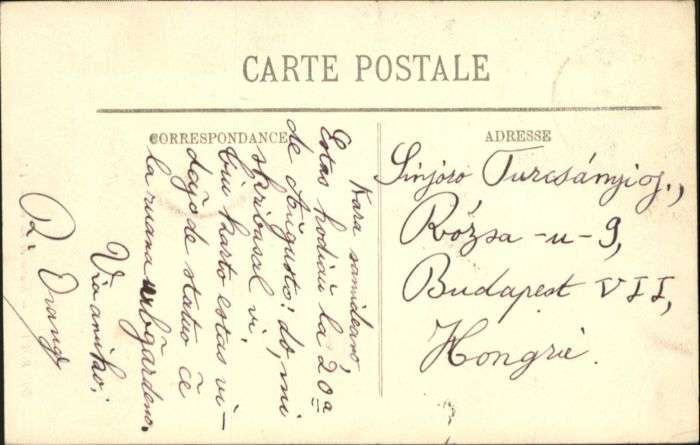 CARTE POSTALE
CORRESPONDANCE
Kara samideano,
Estas hodiaŭ la 20ª
de Aŭgusto: do, mi
skribas al vi.
tiu karto estas vi-
daĵo de statuo ĉe
la ruana urbĝardeno.
Via amiko:
ADRESSE
Sinjoro Turcsányi
Rózsa-u-9,
Budapest VII,
Hongrie.